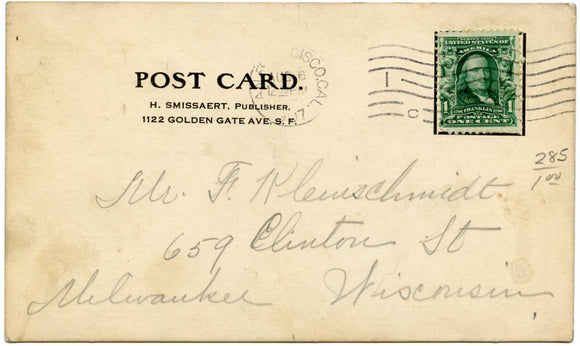 POST CARD.
H. SMISSAERT, PUBLISHER,
1122 GOLDEN GATE AVE. S. F.
CISCO, CAL.
6
1
C
SERIES 1902
UNITED STATES OF
AMERICA
1 FRANKLIN 1
POSTAGE
ONE CENT
285
1 00
Mr. F. Kleinschmidt
659 Clinton St
Milwaukee Wisconsin